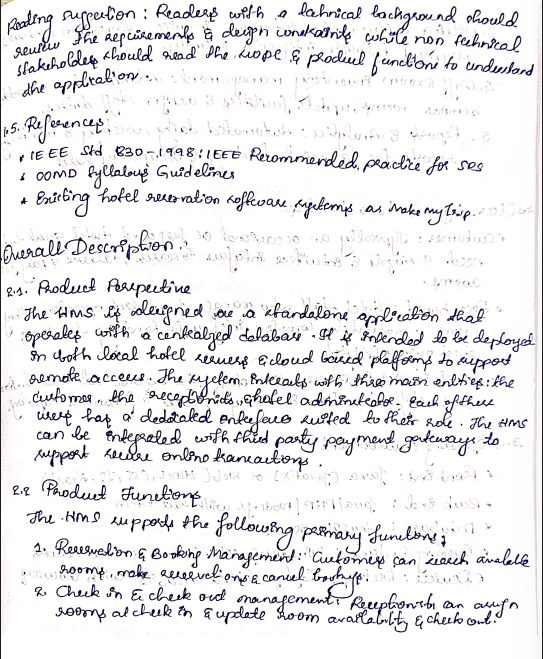 Reading suggestion: Readers with a technical background should
review the requirements & design constraints while non technical
stakeholders should read the scope & product functions to understand
the application.
1.5. References:
• IEEE Std 830-1998: IEEE Recommended practice for SRS
• OOMD Syllabus Guidelines
• Existing hotel reservation software systems as MakeMyTrip.
Overall Description:
2.1. Product Perspective
The HMS is designed as a standalone application that
operates with a centralized database. It is intended to be deployed
in both local hotel servers & cloud based platforms to support
remote access. The system interacts with three main entities: the
customer, the receptionist, & hotel administrator. Each of these
users has a dedicated interface suited to their role. The HMS
can be integrated with third party payment gateways to
support secure online transactions.
2.2 Product Functions
The HMS supports the following primary functions;
1. Reservation & Booking Management: Customers can search available
rooms, make reservations & cancel bookings.
2. Check in & check out management: Receptionists can assign
rooms at check in & update room availability & check out.